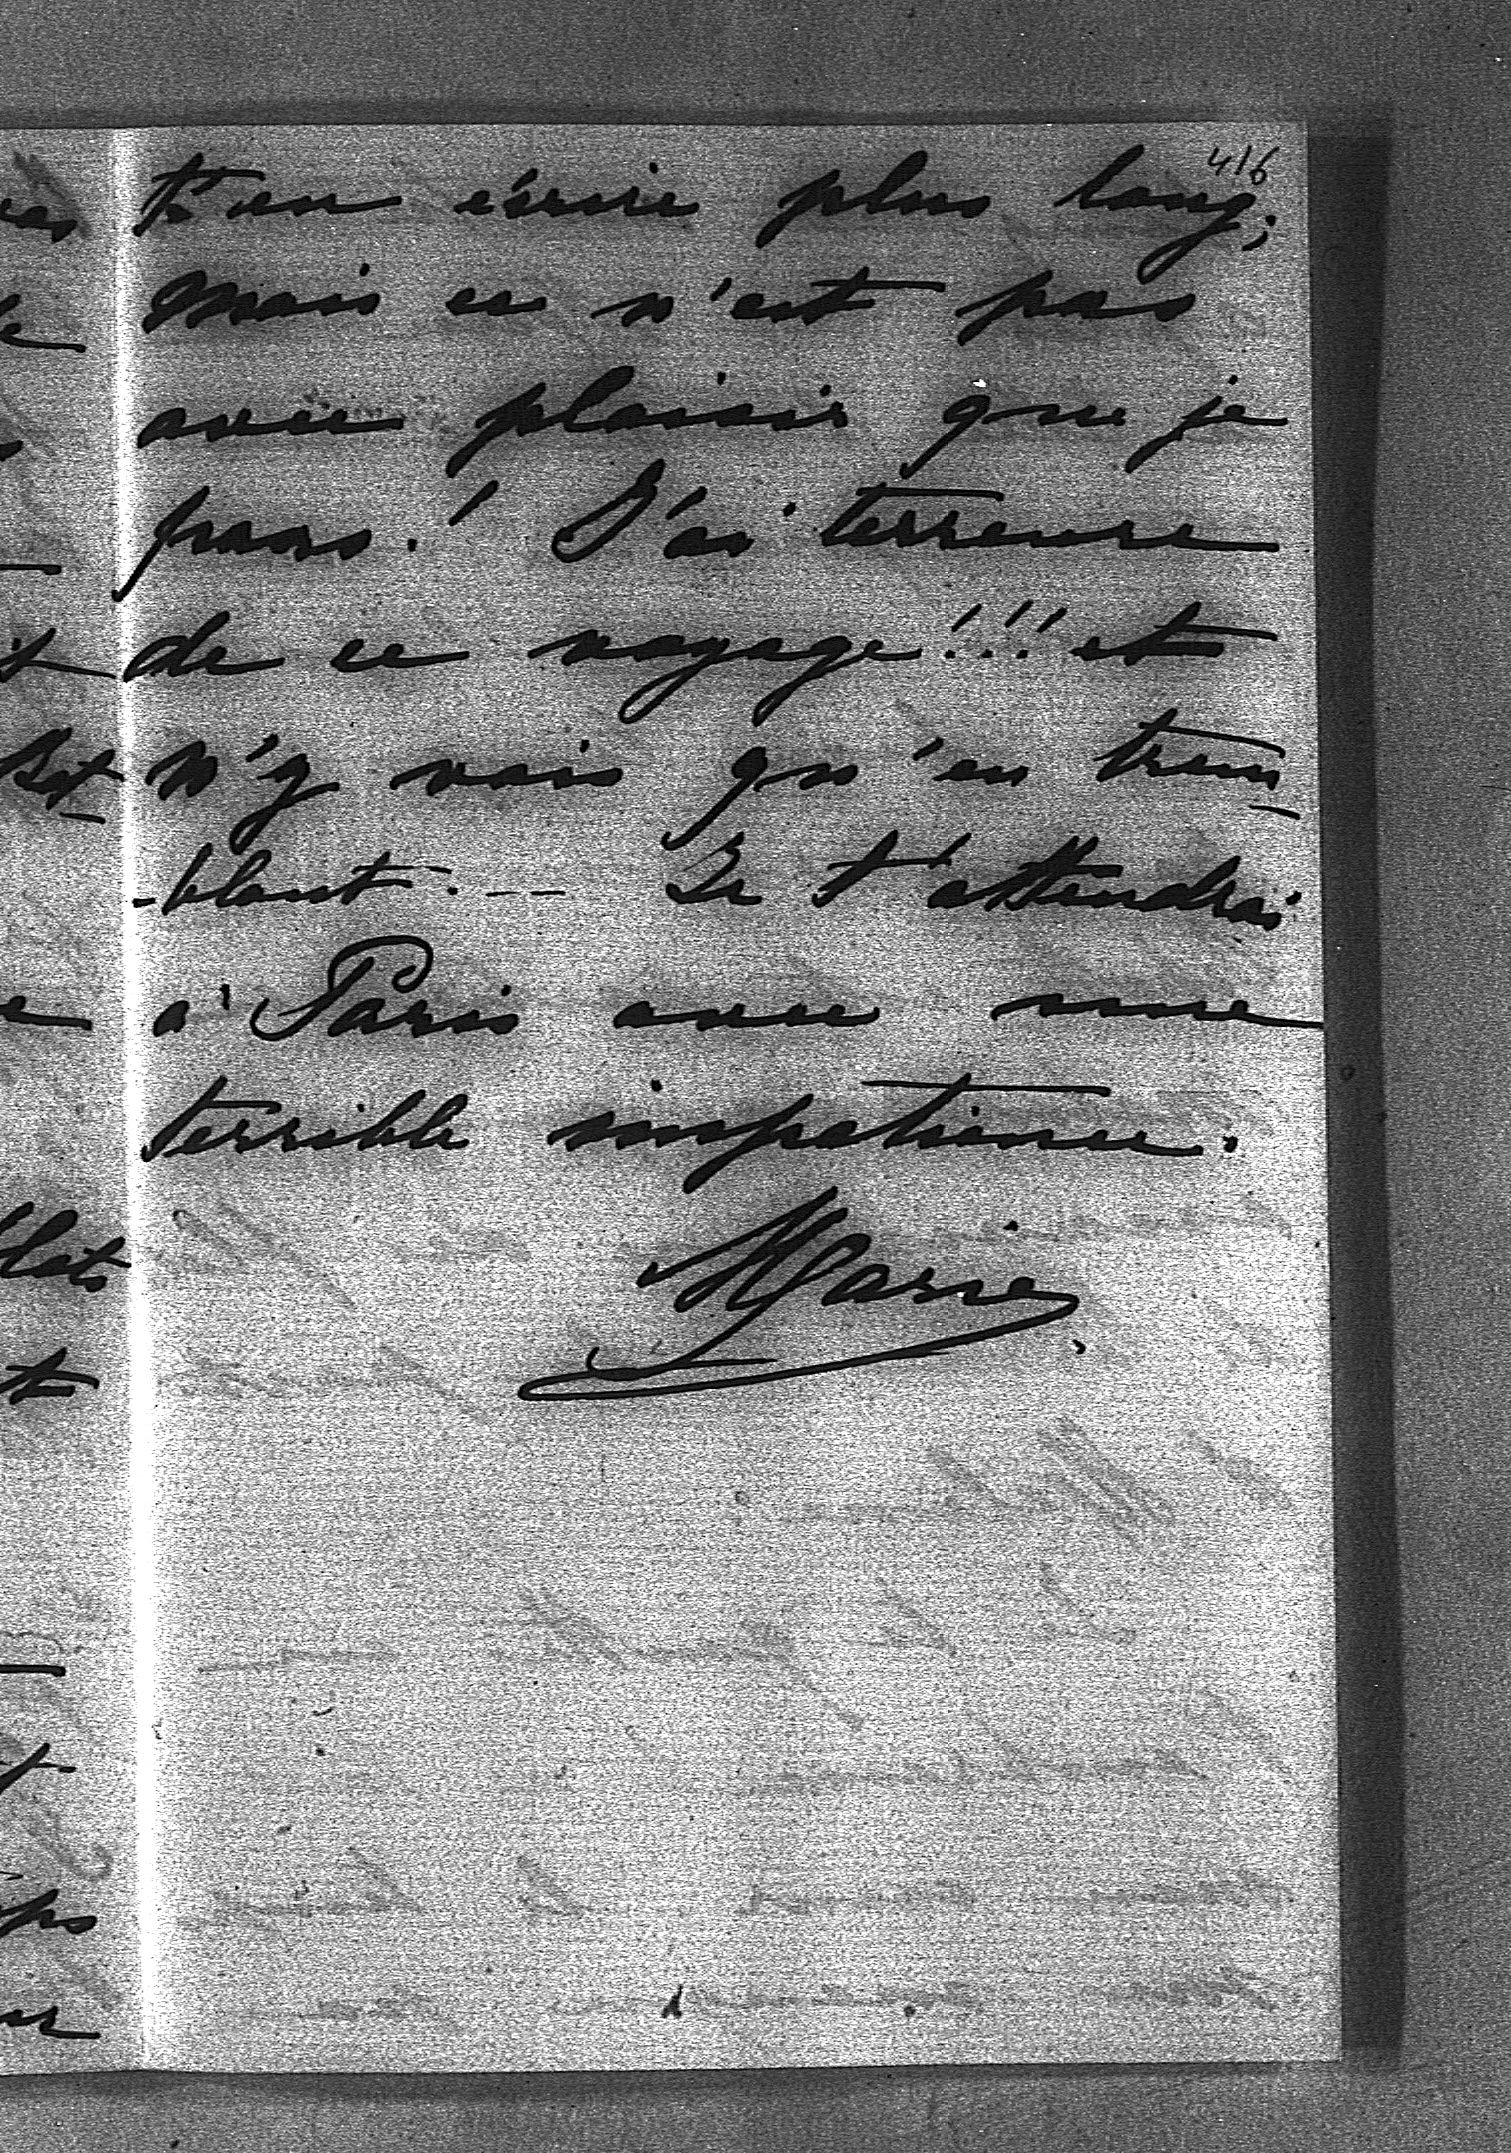 416
t'en écrire plus long;
mais ce n'est pas
avec plaisir que je
pars! J'ai terreure
de ce voyage!!! et
n'y vais qu'en trem-
-blant. — Je t'attendrai
à Paris avec une
terrible impatience.
Marie